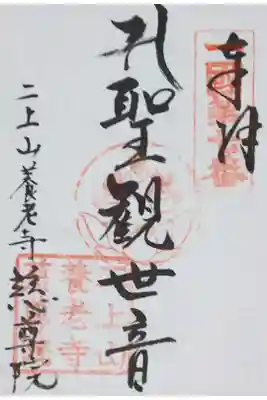 奉拝
聖觀世音
二上山養老寺慈尊院
養老寺